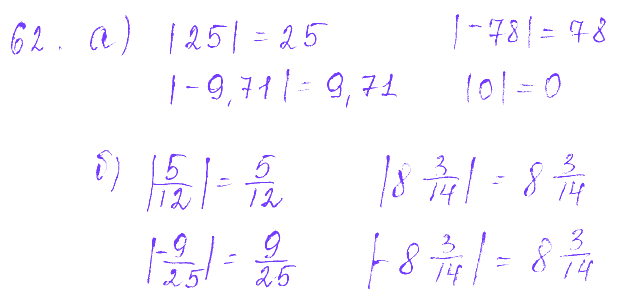 62. а) |25| = 25 |-78| = 78
|-9,71| = 9,71 |0| = 0
б) |5/12| = 5/12 |8 3/14| = 8 3/14
|-9/25| = 9/25 |-8 3/14| = 8 3/14